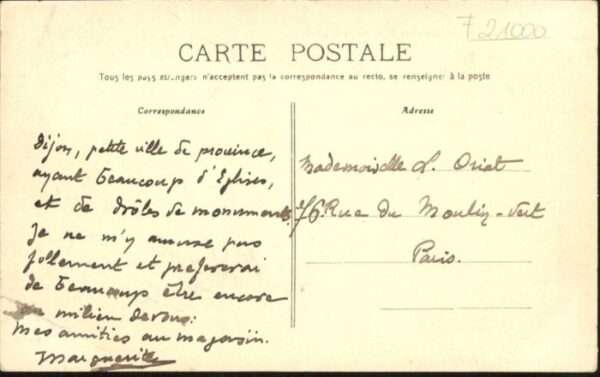 7 21000
CARTE POSTALE
Tous les pays étrangers n'acceptent pas la correspondance au recto, se renseigner à la poste
Correspondance
Adresse
Dijon, petite ville de province,
ayant beaucoup d'Eglises,
et de drôles de monuments.
Je ne m'y amuse pas
follement et prefererai
de beaucoup être encore
au milien de vous.
Mes amities au magasin.
Marguerite
Mademoiselle L. Oriat
76 Rue du Moulin-Vert
Paris.